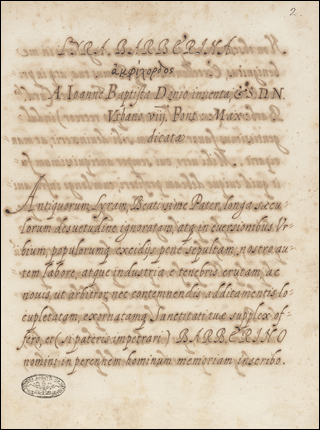 2.
LYRA BARBERINA
ἀμφίχορδος
A Ioanne Baptista Donio inuenta, & S. D. N.
Vrbano viij. Pont. Max.
dicata
Antiquorum Lyram, Beatissime Pater, longa sæcu-
lorum desuetudine ignoratam, atq; in euersionibus Vr-
bium, populorumq; excidijs pene sepultam, nostro au-
tem labore, atque industria e tenebris erutam, ac
nouis, ut arbitror, nec contemnendis additamentis lo-
cupletatam, exornatamq; Sanctitati tuæ supplex of-
fero, et (si pateris impetrari) BARBERINO
nomini in perennem hominum memoriam inscribo.